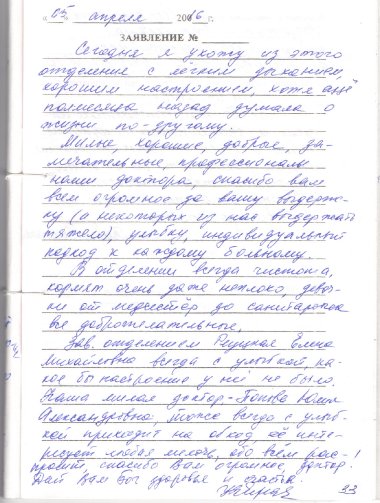 "05" апреля 2016 г.
ЗАЯВЛЕНИЕ №
Сегодня я ухожу из этого
отделения с лёгким дыханием,
хорошим настроением, хотя ещё
полмесяца назад думала о
жизни по-другому.
Милые, хорошие, добрые, за-
мечательные, профессионалы
наши доктора, спасибо вам
всем огромное за вашу выдерж-
ку (а некоторых из нас выдержать
тяжело), улыбку, индивидуальный
подход к каждому больному.
В отделении всегда чистота,
кормят очень даже неплохо, девоч-
ки от медсестёр до санитарок
все доброжелательные.
Зав. отделением Елена
Михайловна всегда с улыбкой, ка-
кое бы настроение у неё не было.
Наша милая доктор -
Александровна, тоже всегда с улыб-
кой приходит на обход, её инте-
ресует любая мелочь, обо всём рас-
спросит спасибо Вам огромное, доктор!
Дай Вам Бог здоровья и счастья.